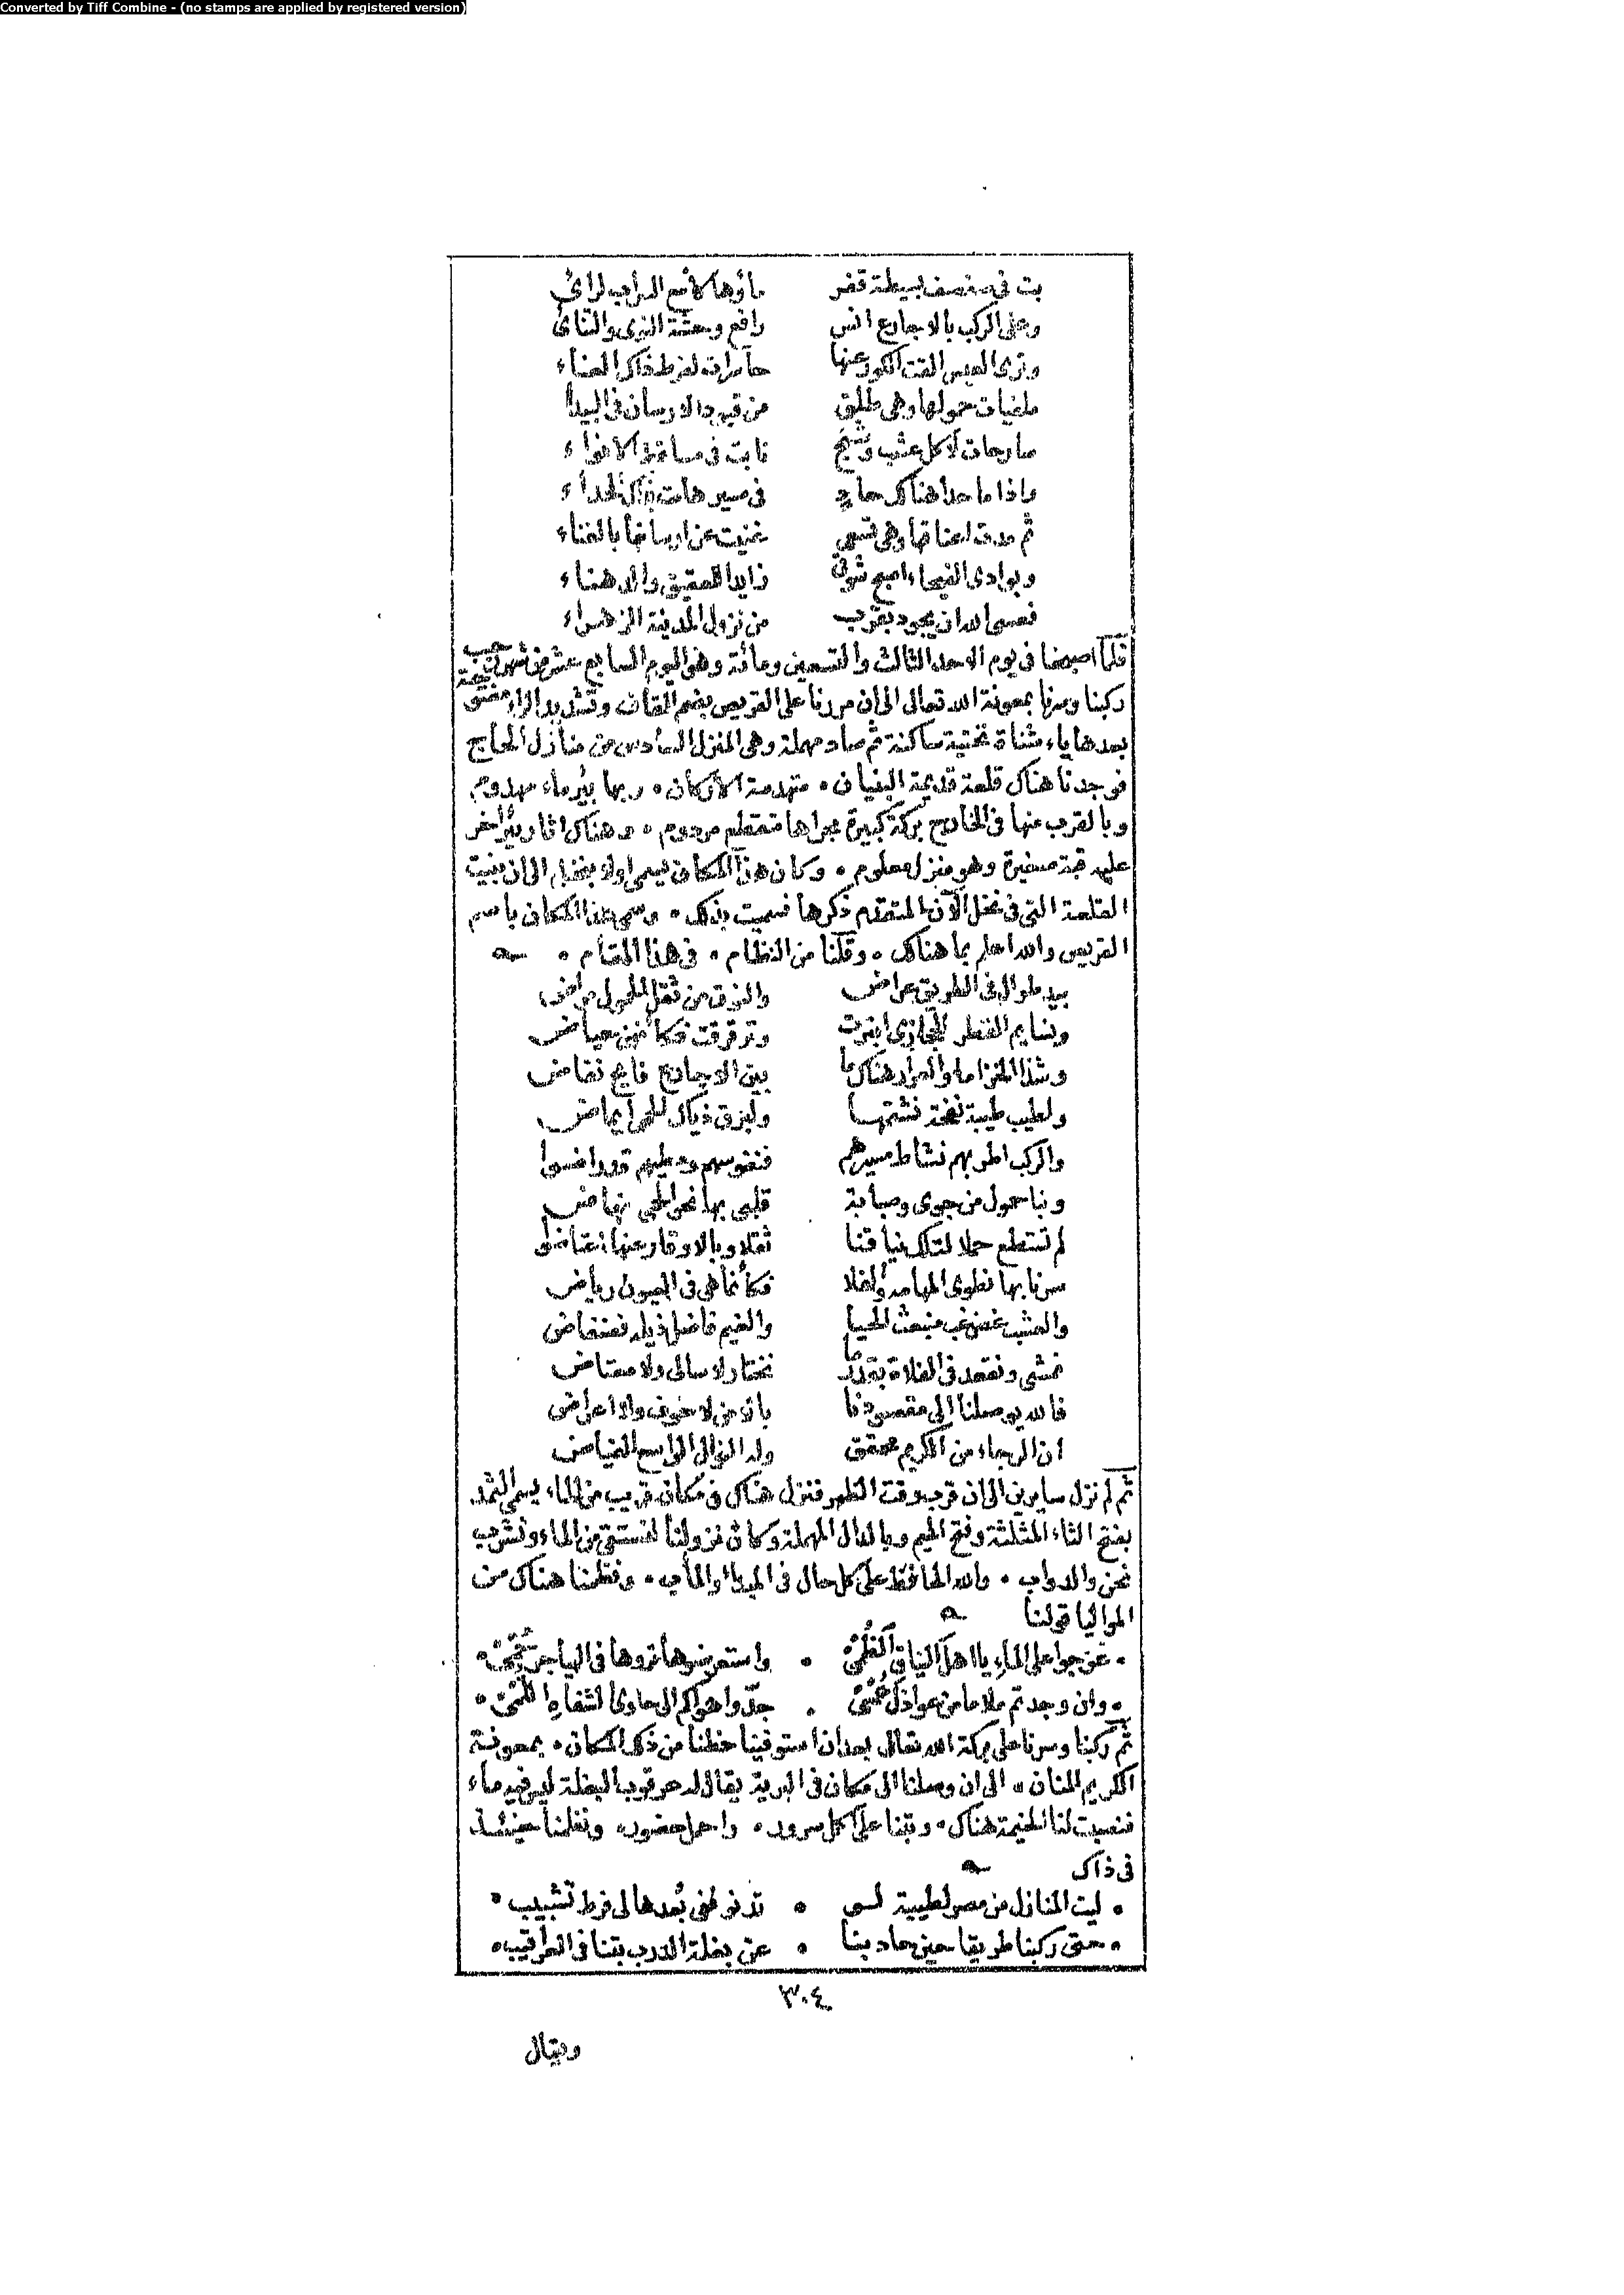 Converted by Tiff Combine - (no stamps are applied by registered version)
بت فى منصف بسيطة قفر ماؤها كلامع السراب لرائى
وعلى الركب بالاجارع انس رافع وحشة النوى والتنائى
وترى العيس القت الكور عنها
ملقيات حمولها وهى طليق من قيود الارسان فى البيدا
سارحات لاكل عشب وشيح نابت فى مسافة الانواء
واذا ما حدا هناك حاد فى مسير هامت بذاك الحداء
ثم مدت اعناقها وهى تسعى غنيت عن ارسانها بالغناء
وبوادى الفيحاء اصبح شوقى زايدا للعقيق والدهناء
فعسى الله ان يجود بقرب من نزول المدينة الزهراء
فلما اصبحنا فى يوم الاحد الثالث والتسعين ومائة وهو اليوم السابع عشر من شهر رجب
ركبنا وسرنا بمعونة الله تعالى الى ان مررنا على القريص بضم القاف وتشديد الراء
بعدها ياء مثناة تحتية ساكنة ثم صاد مهملة وهى المنزل السادس من منازل الحاج
فوجدنا هناك قلعة قديمة البنيان ۰ متهدمة الاركان ۰ وبها بئر ماء مهدوم
وبالقرب منها فى الخارج بركة كبيرة مجراها متقطع مردوم ۰ وهناك اثار بئر اخر
عليه قبة صغيرة وهو منزل معلوم ۰ وكان هذا المكان يسمى اولا بنخل الى ان بنيت
القلعة التى فى نخل الآن المتقدم ذكرها فسميت بذلك ۰ وسمى هذا المكان باسم
القريص والله اعلم بما هناك ۰ وقلنا من النظام ۰ فى هذا المقام ۰
بيد طوال فى الطريق عراض والنوق من ثقل الحمول مراض
ونسايم القطر الحجازى انبرت وترقرقت فكأنهن حياض
وشذا الخزاما والعرار هناك ما بين الاجارع فايح نفاض
ولطيب طيبة نفحة نشتمها ولبرق ذياك الحما ايماض
والركب اطربهم نشاط مسيرهم فنفوسهم ومطيهم قد راضوا
وبنا حمول من جوى وصبابة قلبى بها نحو الحمى نهاض
لم تستطع حملا لتلك نياقنا ثقلا وبالاوقار عنها اعتاضوا
سرنا بها نطوى المهامه والفلا فكأنما هى فى العيون رياض
والعشب غض غب منبعث الحيا والغيم فاضل ذيله فضفاض
نمشى ونقعد فى الفلاة بقدر ما نختار لا سالى ولا معتاض
فالله يوصلنا الى مقصودنا بالامن لا خوف ولا اعراض
ان الرجاء من الكريم محقق وله النوال الواسع الفياض
ثم لم نزل سايرين الى ان قرب وقت الظهر فنزل هناك فى مكان قريب من الماء يسمى الثمد
بفتح الثاء المثلثة وفتح الميم وبالدال المهملة وكان نزولنا لنستقى من الماء ونشرب
نحن والدواب ۰ والله الحافظ على كل حال فى المبدا والمآب ۰ ونظمنا هناك من
المواليا قولنا
۰ عوجوا على الماء يا اهل النياق ۰ واستعرضوها تروها فى الهياجر ۰
۰ وان وجدتم ملاما من عواذل ۰ جدّوا هواكم الى حاوى الشفاه اللعس ۰
ثم ركبنا وسرنا على بركة الله تعالى بعد ان استوفينا حظنا من ذلك المكان ۰ بمعونة
الكريم المنان ۰ الى ان وصلنا الى مكان فى البرية يقال له عرقوب البغلة ليس فيه ماء
فنصبت لنا الخيمة هناك ۰ وبتنا على اكمل سرور ۰ واجمل حضور ۰ ونظمنا حينئذ
فى ذاك
۰ ليت المنازل من مصر لطيبة لى ۰ تدنو ففى بُعدها لى فرط تشبيب ۰
۰ حتى ركبنا طريقا حين حاد بنا ۰ عن بغلة الدرب بتنا فى العراقيب ۰
٣٠٤
ويقال